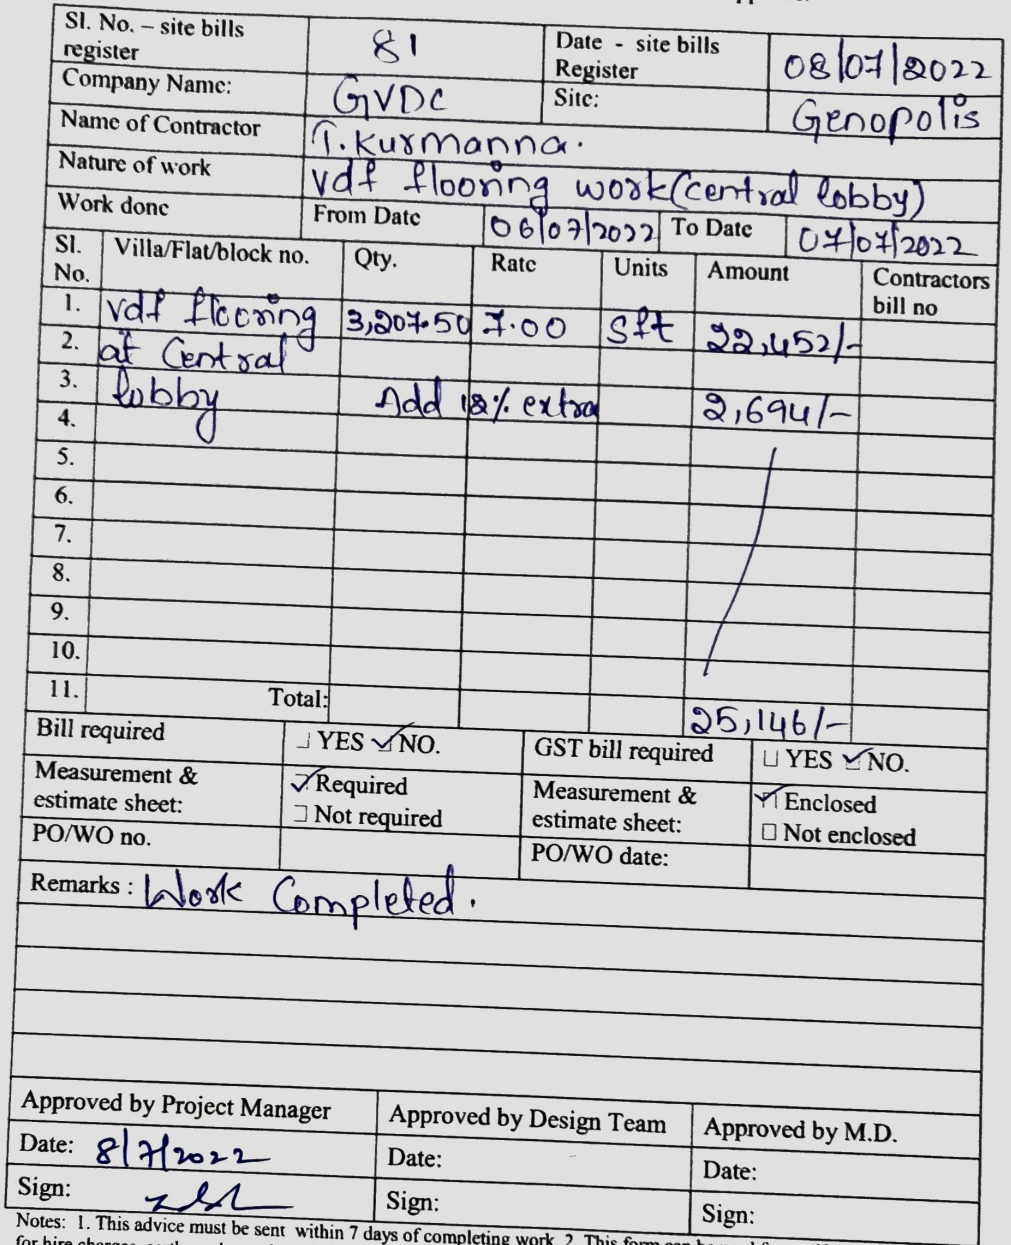 Sl. No. – site bills register 81 Date - site bills Register 08/07/2022
Company Name: GVDC Site: Genopolis
Name of Contractor T. Kurmanna.
Nature of work vdf flooring work(central lobby)
Work done From Date 06/07/2022 To Date 07/07/2022
Sl. No. Villa/Flat/block no. Qty. Rate Units Amount Contractors bill no
1. vdf flooring 3,207.50 7.00 Sft 22,452/-
2. at Central
3. lobby Add 12% extra 2,694/-
4.
5.
6.
7.
8.
9.
10.
11. Total: 25,146/-
Bill required YES NO. GST bill required YES NO.
Measurement & estimate sheet: Required Not required Measurement & estimate sheet: Enclosed Not enclosed
PO/WO no. PO/WO date:
Remarks : Work Completed.
Approved by Project Manager Approved by Design Team Approved by M.D.
Date: 8/7/2022 Date: Date:
Sign: Sign: Sign:
Notes: 1. This advice must be sent within 7 days of completing work 2. This form can be
for hire charges